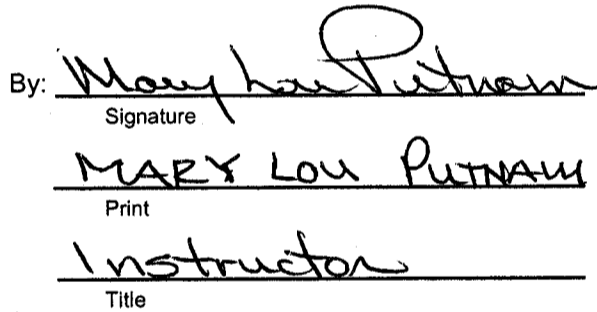 By: Mary Lou Putnam
Signature
MARY LOU PUTNAM
Print
Instructor
Title